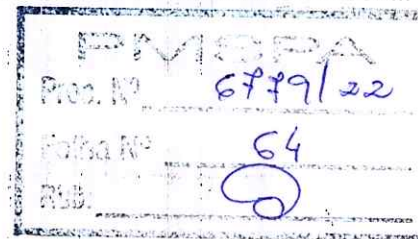 PMSPA
Proc. Nº 6779/22
Folha Nº 64
RUB.